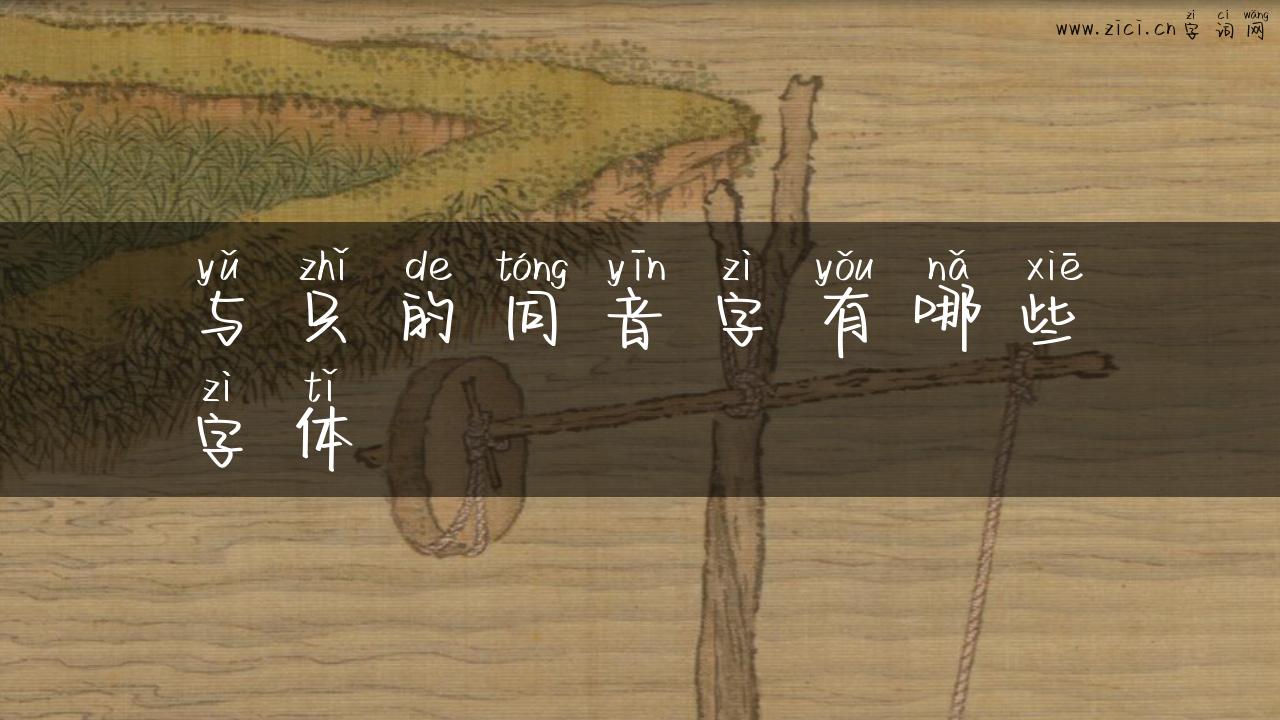 zì cí wǎng
www.zici.cn 字词网
yǔ zhǐ de tóng yīn zì yǒu nǎ xiē
与只的同音字有哪些
zì tǐ
字体